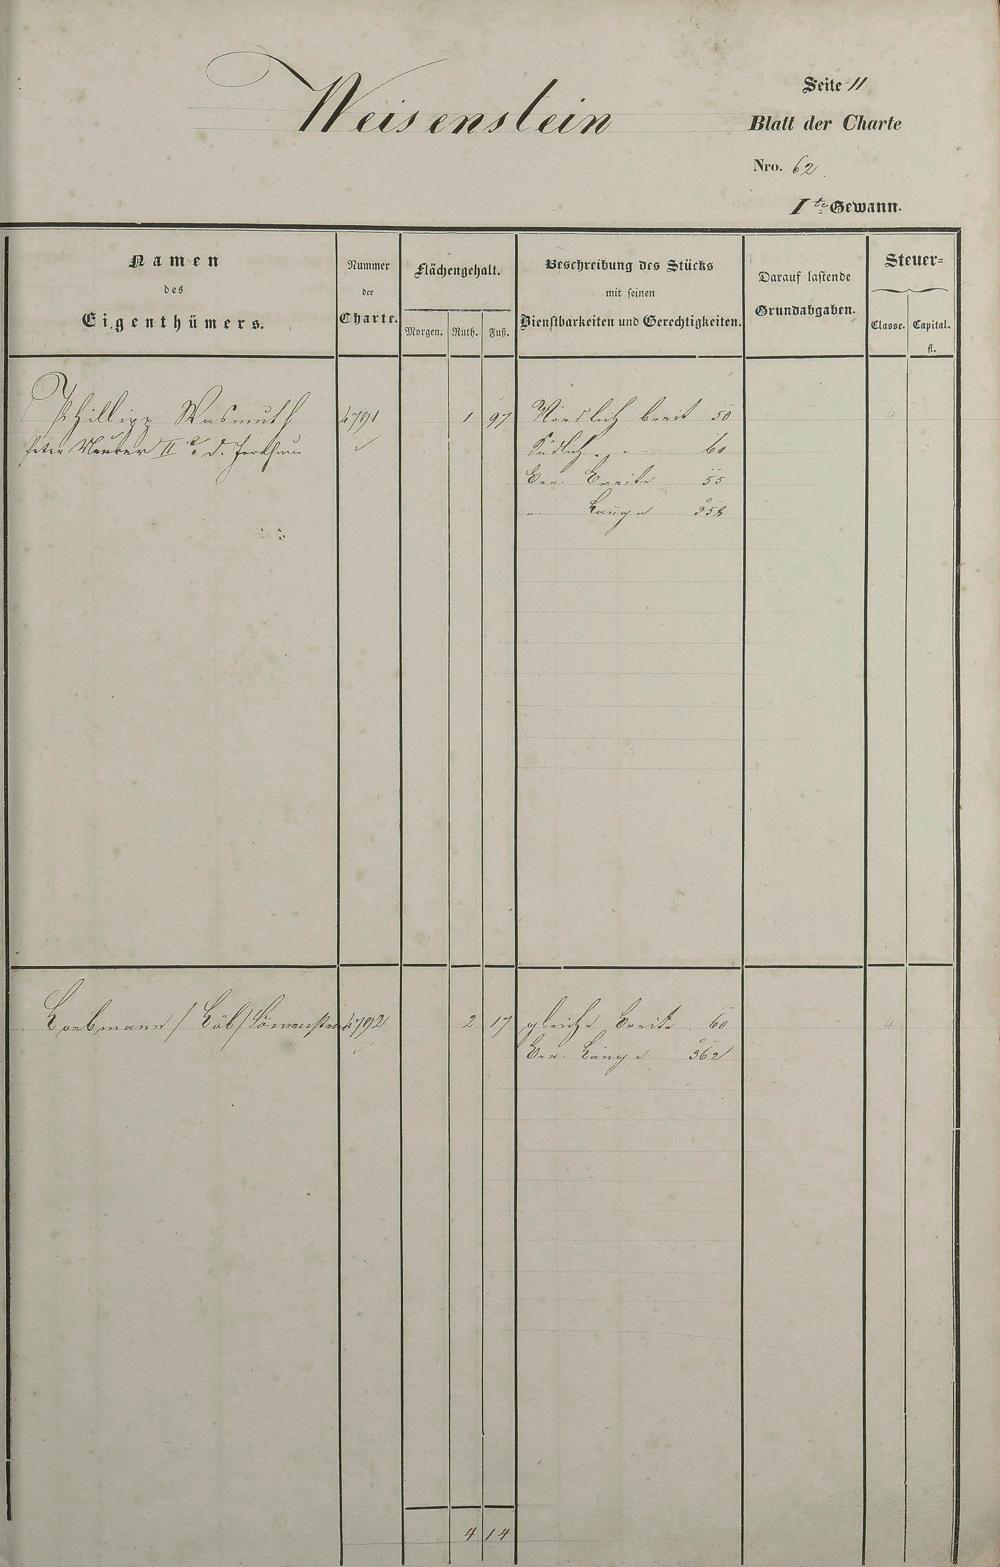 Weisenstein
Seite 11
Blatt der Charte
Nro. 62.
I te Gewann.
Namen
des
Eigenthümers.
Nummer
der
Charte.
Flächengehalt.
Morgen. Ruth. Fuß.
Beschreibung des Stücks
mit seinen
Dienstbarkeiten und Gerechtigkeiten.
Darauf lastende
Grundabgaben.
Steuer=
Classe. Capital.
fl.
Phillipp Wasmuth 4791 1 97 Nördlich breit 50 4
Peter Neurer II r d. Südlich " " 60
Ger. Breite 55
" Länge 358
Loebmann / Löb / Löwenstein 4792 2 17 gleiche Breite 60 4
Ger. Länge 362
4 14